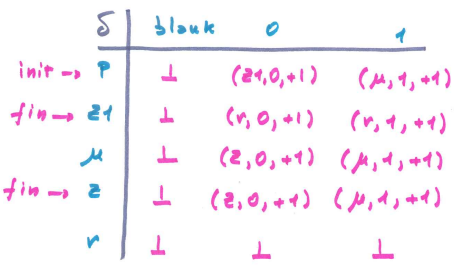 δ blank 0 1
init → P ⊥ (z1,0,+1) (μ,1,+1)
fin → z1 ⊥ (r,0,+1) (r,1,+1)
μ ⊥ (z,0,+1) (μ,1,+1)
fin → z ⊥ (z,0,+1) (μ,1,+1)
r ⊥ ⊥ ⊥